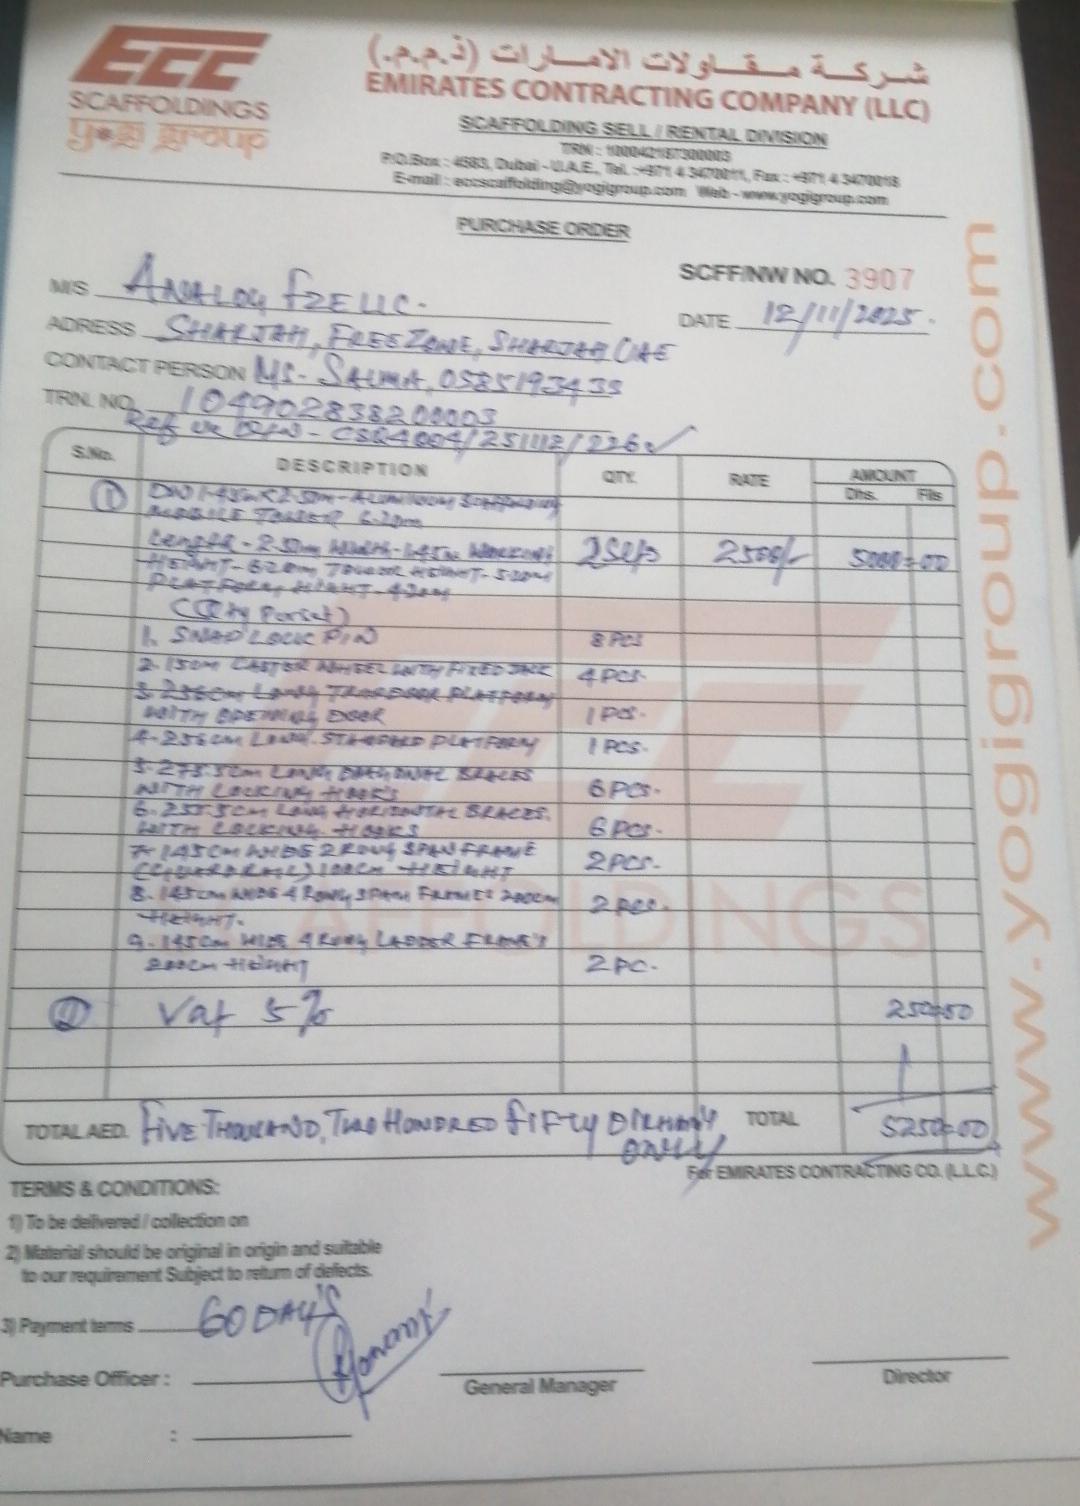 ECC
SCAFFOLDINGS
yogi group
شركة مقاولات الامارات (ذ.م.م.)
EMIRATES CONTRACTING COMPANY (LLC)
SCAFFOLDING SELL / RENTAL DIVISION
TRN : 100042187300003
P.O.Box : 4583, Dubai - U.A.E., Tel. :+971 4 3470011, Fax : +971 4 3470018
E-mail : eccscaffolding@yogigroup.com Web - www.yogigroup.com
PURCHASE ORDER
SCFF/NW NO. 3907
M/S ANALOG FZE LLC.
DATE 12/11/2025.
ADRESS SHARJAH, FREE ZONE, SHARJAH UAE
CONTACT PERSON MS. SALMA, 0585193433
TRN. NO. 104902838200003
Ref CSQ4004/251112/226
S.No. DESCRIPTION QTY. RATE AMOUNT
Dhs. Fils
1 DW 1.45m x 2.50m - ALUMINIUM SCAFFOLDING
MOBILE TOWER 6.20m
Length - 2.50m Width - 1.45m WORKING 2 Sets 2500/- 5000=00
HEIGHT - 6.20m TOWER HEIGHT - 5.20m
PLATFORM HIGHT - 4.20m
(Qty Perset)
1. SNAP LOCK PIN 8 PCS
2. 15cm CASTER WHEEL WITH FIXED JACK 4 PCS.
3. 256cm LONG TRAPDOOR PLATFORM
WITH OPENING DOOR 1 PCS.
4. 256cm LONG STANDARD PLATFORM 1 PCS.
5. 275.5cm LONG DIAGONAL BRACES
WITH LOCKING HOOK'S 6 PCS.
6. 255.5cm LONG HORIZONTAL BRACES.
WITH LOCKING HOOKS 6 PCS.
7. 145cm WIDE 2 RONG SPAN FRAME
(GUARDRAIL) 100cm HEIGHT 2 PCS.
8. 145cm WIDE 4 RONG SPAN FRAME 200cm 2 PCS.
HEIGHT.
9. 145cm WIDE 4 RONG LADDER FRAME'S
200cm HEIGHT 2 PC.
2 Vat 5% 250=00
TOTAL AED. FIVE THOUSAND, TWO HUNDRED FIFTY DIRHAMS TOTAL 5250=00
ONLY
For EMIRATES CONTRACTING CO. (L.L.C.)
TERMS & CONDITIONS:
1) To be delivered / collection on
2) Material should be original in origin and suitable
to our requirement Subject to return of defects.
3) Payment terms 60 DAY'S
Purchase Officer :
General Manager
Director
Name :
www.yogigroup.com
AFFOLDINGS